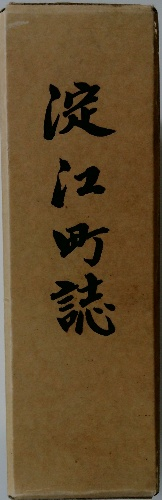 淀江町誌